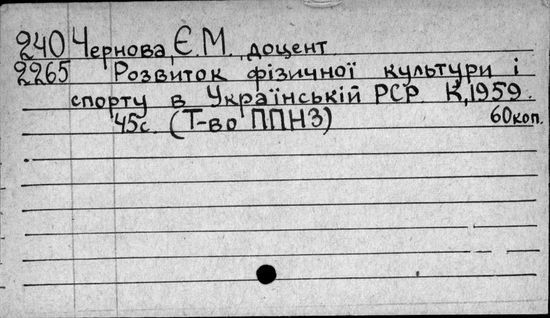 240 Чернова, Є.М., доцент
2265 Розвиток фізичної культури і
спорту в Українській РСР. К., 1959.
45с. (Т-во ППНЗ) 60коп.